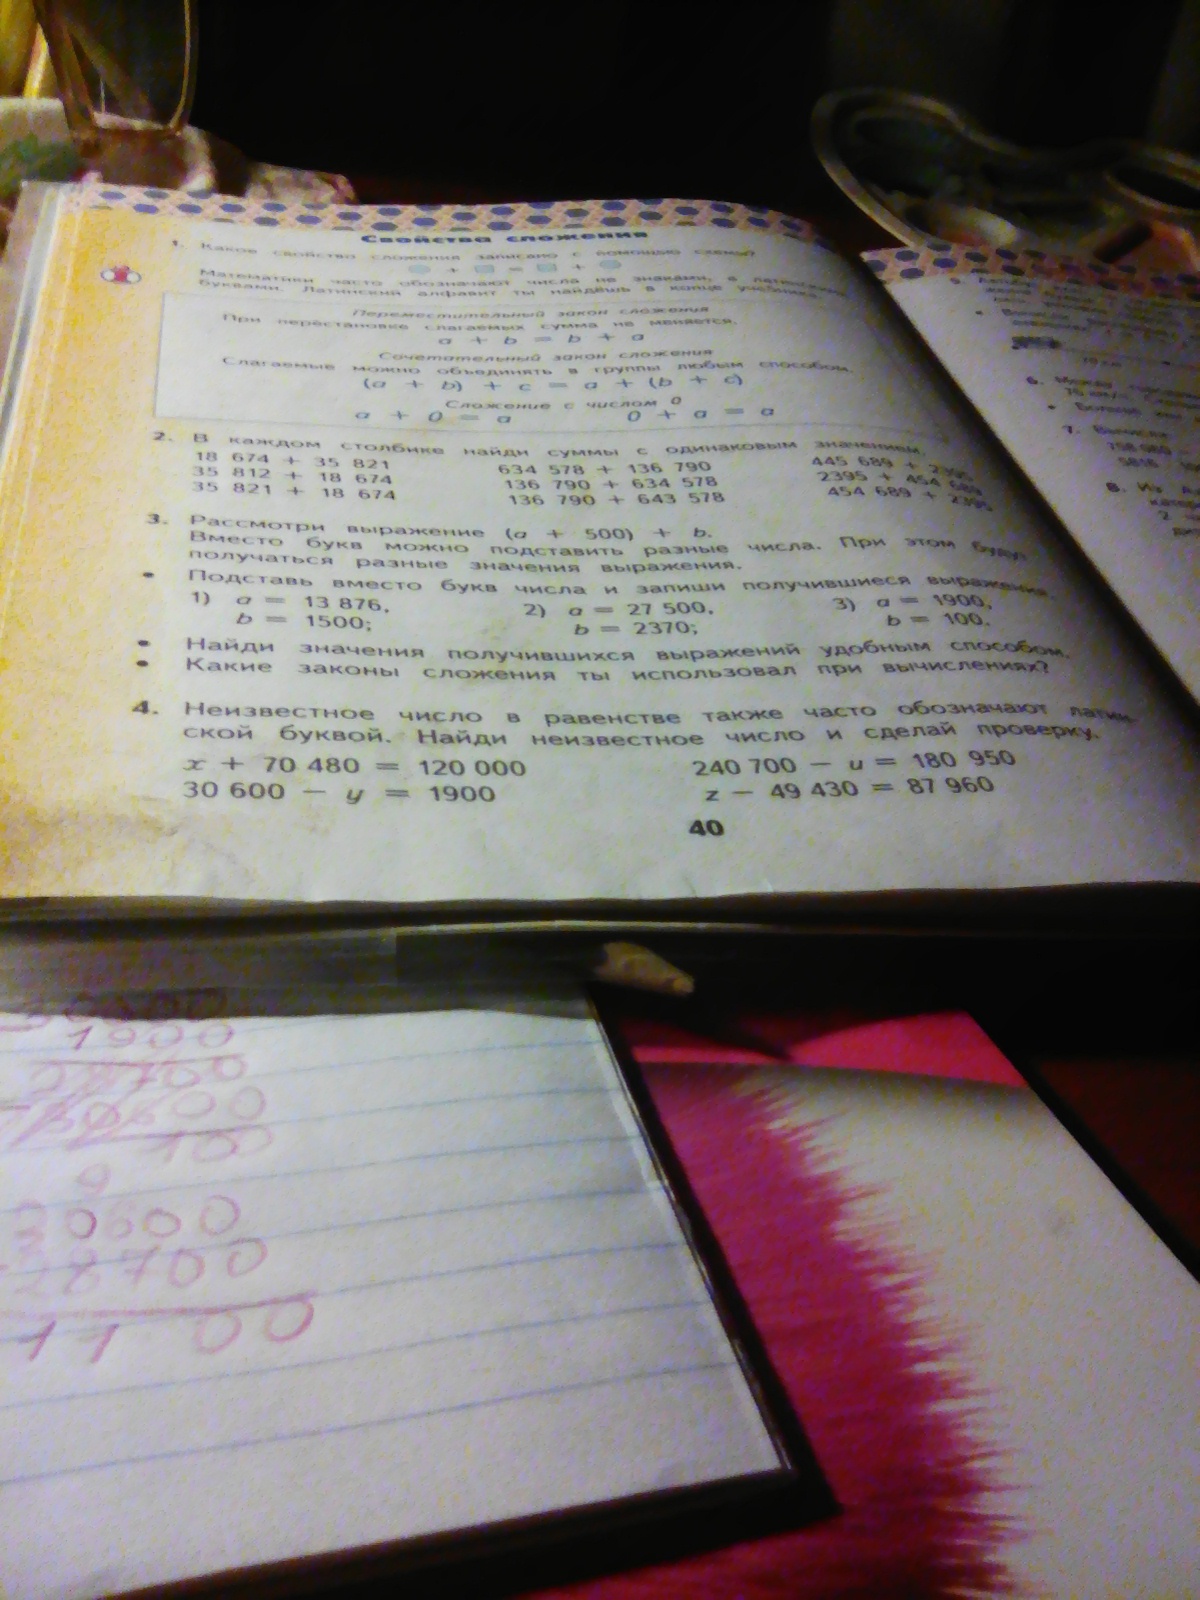 Свойства сложения
1. Какое свойство сложения записано с помощью схемы?
+ = +
Математики часто обозначают числа не знаками, а латинскими
буквами. Латинский алфавит ты найдёшь в конце учебника.
Переместительный закон сложения
При перестановке слагаемых сумма не меняется.
a + b = b + a
Сочетательный закон сложения
Слагаемые можно объединять в группы любым способом.
(a + b) + c = a + (b + c)
Сложение с числом 0
a + 0 = a 0 + a = a
2. В каждом столбике найди суммы с одинаковым значением.
18 674 + 35 821 634 578 + 136 790 445 689 + 2395
35 812 + 18 674 136 790 + 634 578 2395 + 454 689
35 821 + 18 674 136 790 + 643 578 454 689 + 2395
3. Рассмотри выражение (a + 500) + b.
Вместо букв можно подставить разные числа. При этом будут
получаться разные значения выражения.
• Подставь вместо букв числа и запиши получившиеся выражения.
1) a = 13 876, 2) a = 27 500, 3) a = 1900,
b = 1500; b = 2370; b = 100.
• Найди значения получившихся выражений удобным способом.
• Какие законы сложения ты использовал при вычислениях?
4. Неизвестное число в равенстве также часто обозначают латин-
ской буквой. Найди неизвестное число и сделай проверку.
x + 70 480 = 120 000 240 700 − u = 180 950
30 600 − y = 1900 z − 49 430 = 87 960
40
5.
6. Между
7. Вычисли
8. Из
1900
28700
100
30600
28700
11 00